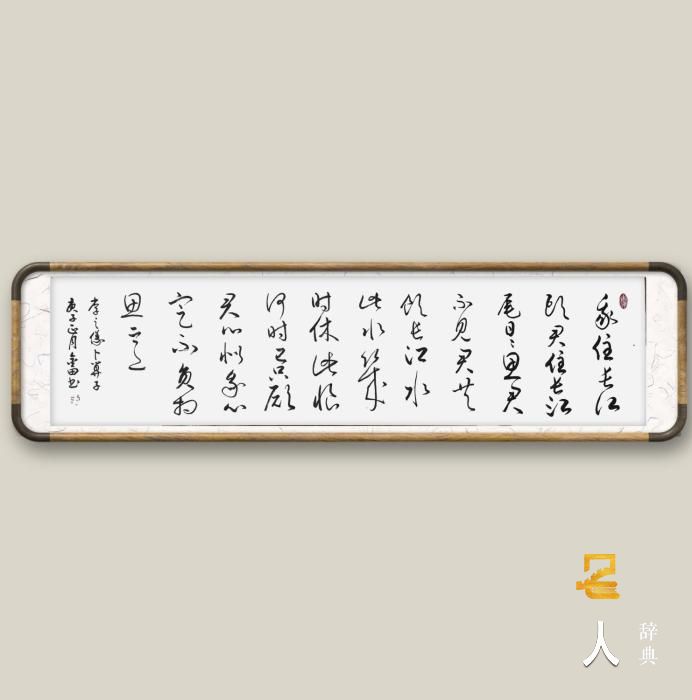 我住长江
头君住长江
尾日々思君
不见君共
饮长江水
此水几
时休此恨
何时已只愿
君心似我心
定不负相
思意
李之仪卜算子
庚子正月
名人
辞典